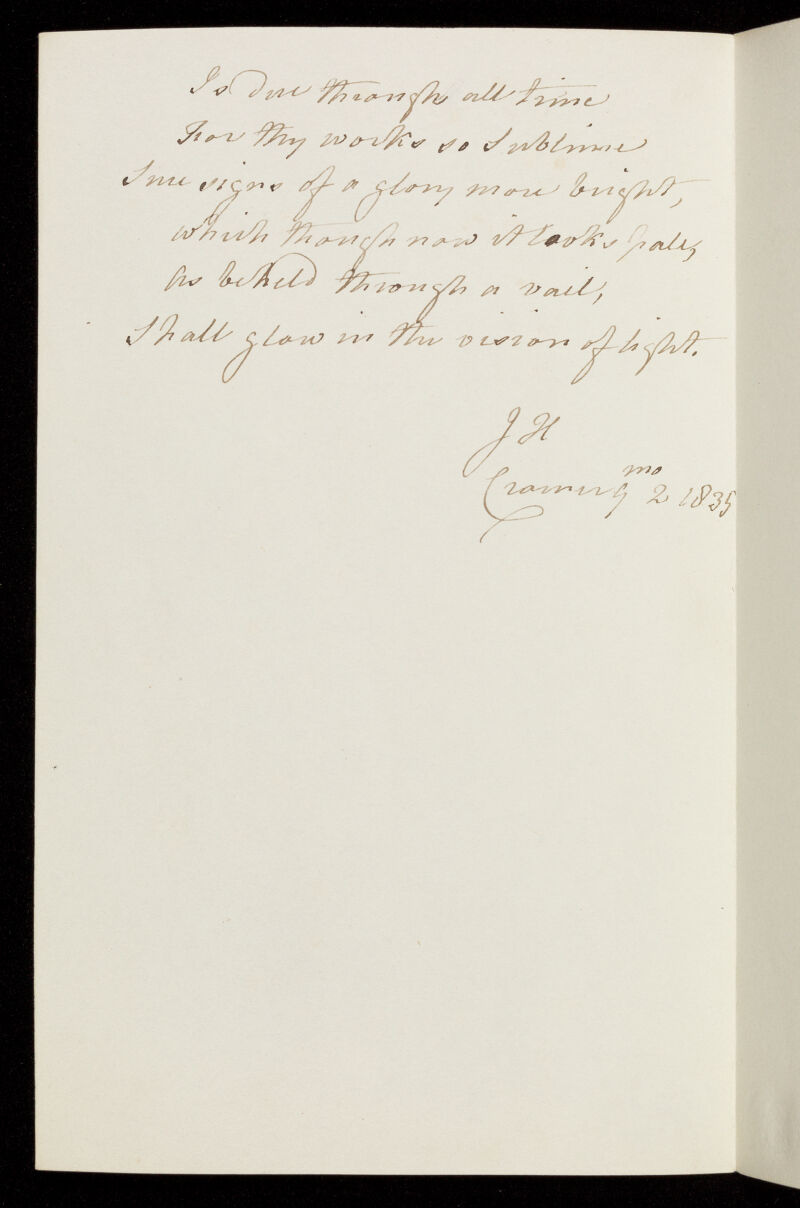 Is due through all time
For thy works so Sublime
Sure signs of a glory more bright,
which though now it looks pale,
As beheld through a vail,
Shall glow in the vision of light.
J H
Cromer 9 mo 2 1835